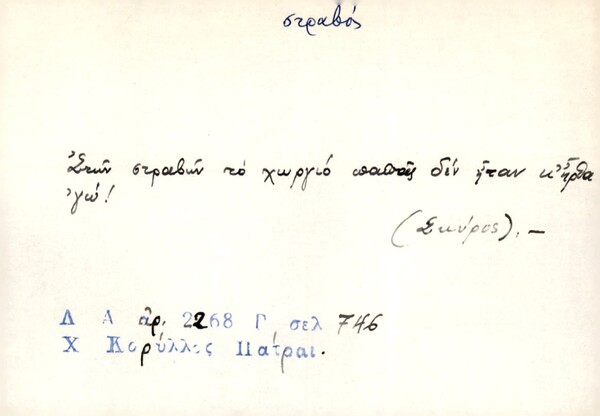 στραβός
Στῶν στραβῶν τό χωργιό παπᾶς δέν ἦταν κ' ἦρθα
'γώ!
(Σκύρος). —
Λ Α ἀρ. 2268 Γ, σελ 746
Χ Κορύλλος Πάτραι.